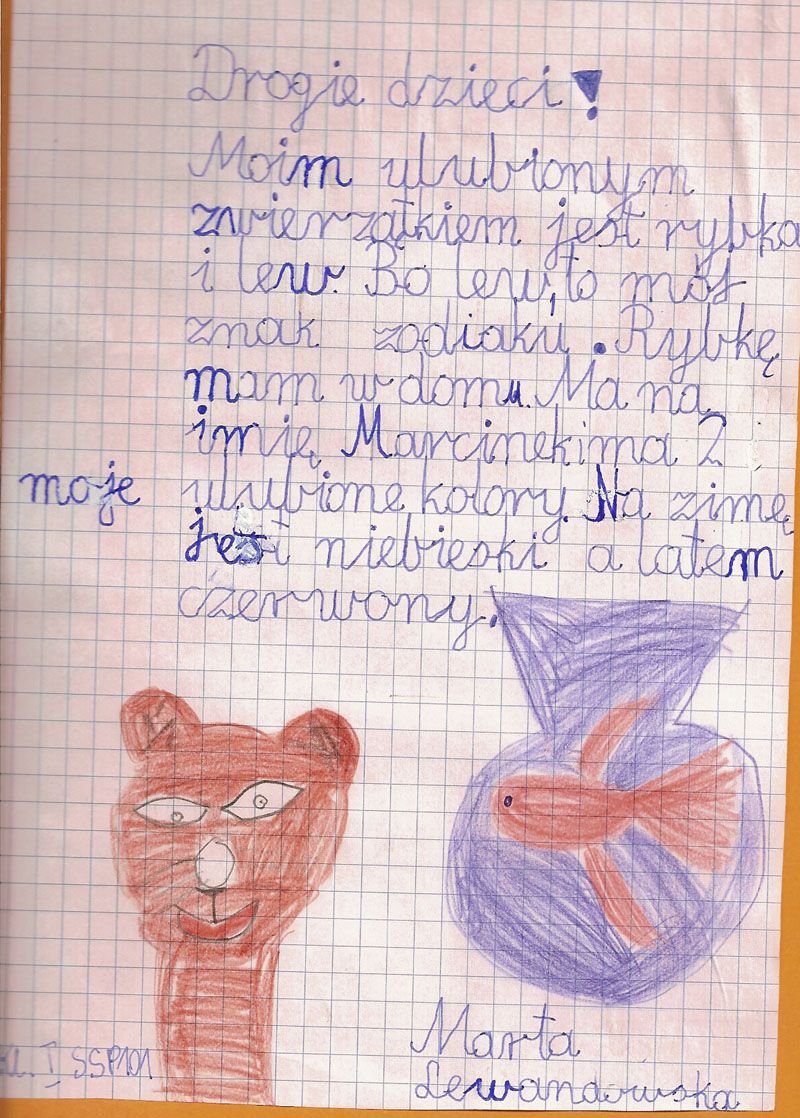 Drogie dzieci!
Moim ulubionym
zwierzątkiem jest rybka
i lew. Bo lew, to mój
znak zodiaku. Rybkę
mam w domu. Ma na
imię Marcinek i ma 2
moje ulubione kolory. Na zimę
jest niebieski a latem
czerwony.
Marta
Lewandowska
kl. I SSP101